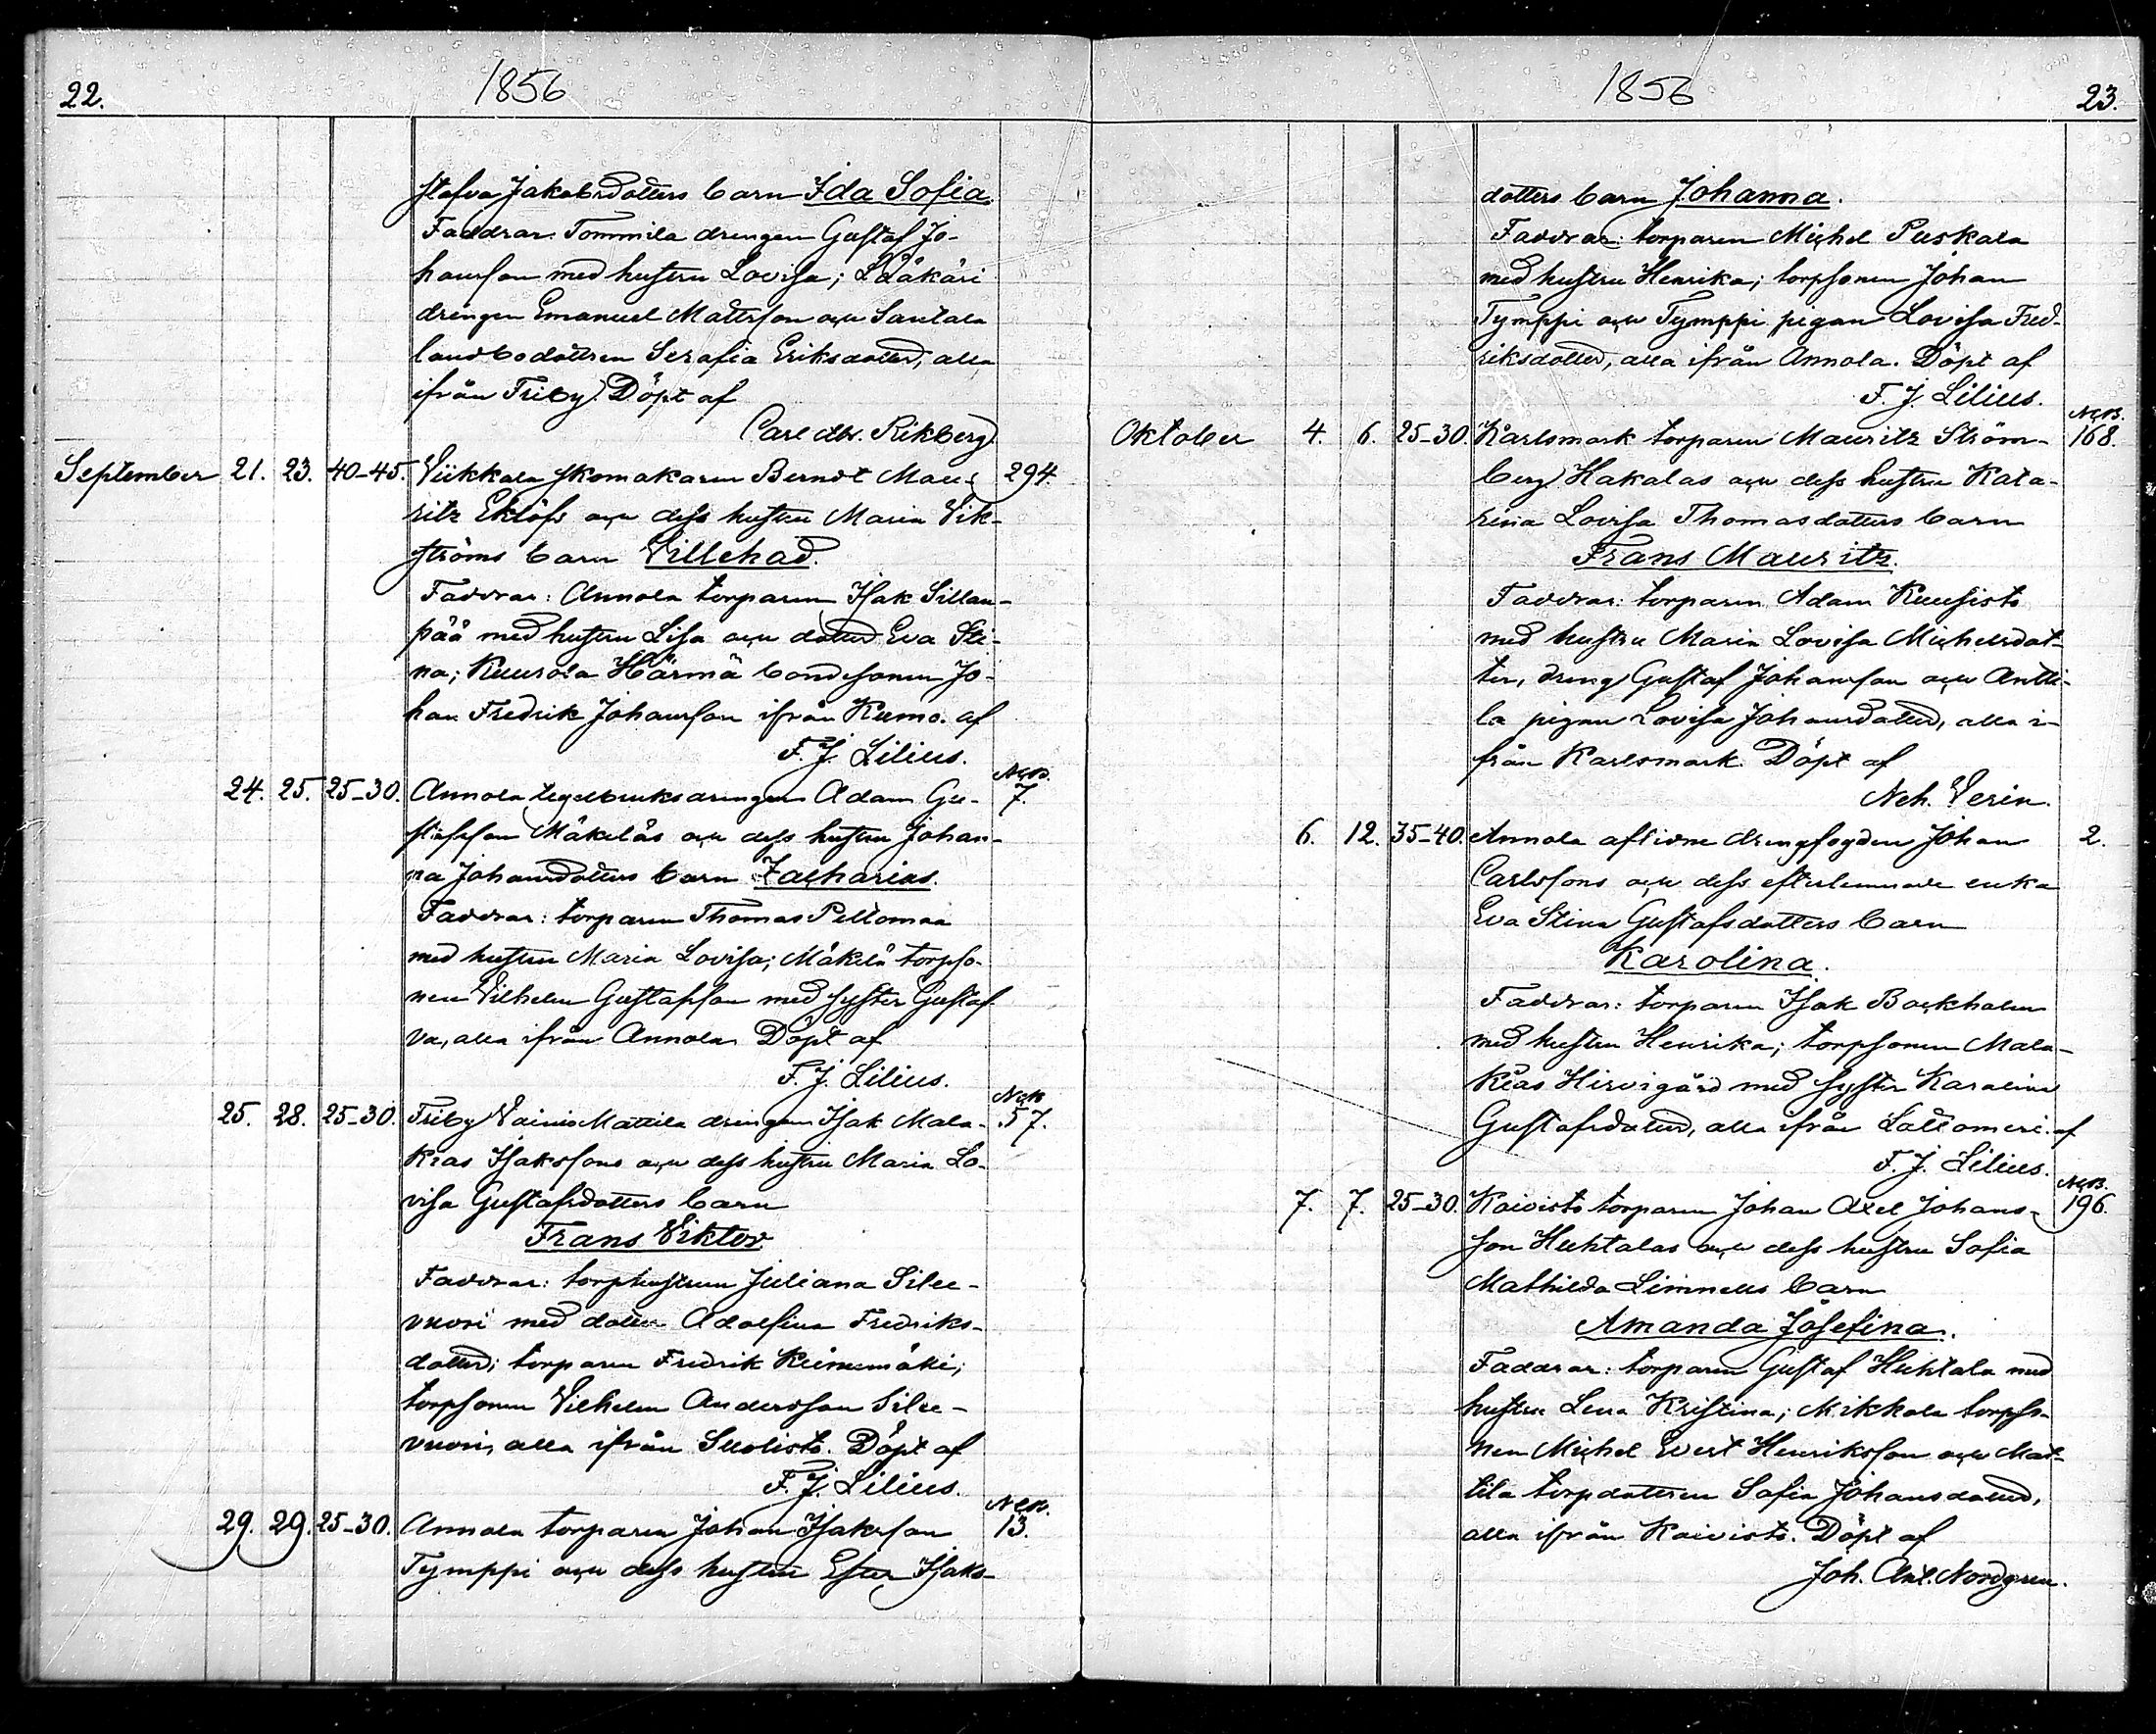 22.
1856
stafva Jakobsdotters barn Ida Sofia.
Faddrar. Tommila drengen Gustaf Jo-
hansson med hustru Lovisa; Lääkäri
drengen Emanuel Mattsson och Santala
landbodottren Serafia Eriksdotter, alla
ifrån Friby. Döpt af
Carl Rikberg
September 21. 23. 40-45. Viikkala skomakaren Berndt Mau- 294.
ritz Eklöfs och dess hustru Maria Vik-
ströms barn Villehad.
Faddrar: Annola torparen Isak Sillan-
pää med hustru Lisa och dotter Eva Sti-
na; Kuurola Härmä bondesonen Jo-
han Fredrik Johansson ifrån Kumo. af
F. J. Lilius.
N:o B.
24. 25. 25-30. Annola tegelbruksdrengen Adam Gu- 7.
stafsson Mäkeläs och dess hustru Johan-
na Johansdotters barn Zacharias.
Faddrar: torparen Thomas Peltomaa
med hustru Maria Lovisa; Mäkelä torpso-
nen Vilhelm Gustafsson med syster Gustaf-
va, alla ifrån Annola Döpt af
F. J. Lilius.
25. 28. 25-30. Friby Vainio Mattila drengen Isak Mala- 57.
kias Isakssons och dess hustru Maria Lo-
visa Gustafsdotters barn
Frans Viktor
Faddrar: torphustrun Juliana Silee-
vuori med dotter Adolfina Fredriks-
dotter; torparen Fredrik
torpsonen Vilhelm Andersson Silee-
vuori, alla ifrån Suolisto. Döpt af
F. J. Lilius.
29. 29. 25-30. Annola torparen Johan Isaksson 13.
Tymppi och dess hustru Ester Isaks-
1856
23.
dotters barn Johanna.
Faddrar: torparen Michel Puskala
med hustru Henrika; torpsonen Johan
Tymppi och Tymppi pigan Lovisa Fred-
riksdotter, alla ifrån Annola. Döpt af
F. J. Lilius.
N:o B.
Oktober 4. 6. 25-30. Karlsmark torparen Mauritz Ström- 168.
berg Hakalas och dess hustru Kata-
rina Lovisa Thomasdotters barn
Frans Mauritz.
Faddrar: torparen Adam Kuusisto
med hustru Maria Lovisa Michelsdot-
ter, dreng Gustaf Johansson och Antti-
la pigan Lovisa Johansdotter, alla i-
från Karlsmark. Döpt af
Neh. Verin.
6. 12. 35-40. Annola aflidne drengfogden Johan 2.
Carlssons och dess efterlemnade enka
Eva Stina Gustafsdotters barn
Karolina.
Faddrar: torparen Isak Backholm
med hustru Henrika; torpsonen Mala-
kias Hirvigård med syster Karolina
Gustafsdotter, alla ifrån Lattomeri. af
F. J. Lilius.
N:o B.
7. 7. 25-30. Koivisto torparen Johan Axel Johans- 196.
son Huhtalas och dess hustru Sofia
Mathilda Limnells barn
Amanda Josefina.
Faddrar: torparen Gustaf Huhtala med
hustru Lena Kristina; Mikkola torpso-
nen Michel Evert Henriksson och Mat-
tila torpdottren Sofia Johansdotter,
alla ifrån Koivisto. Döpt af
Joh. Axl. Nordgren.